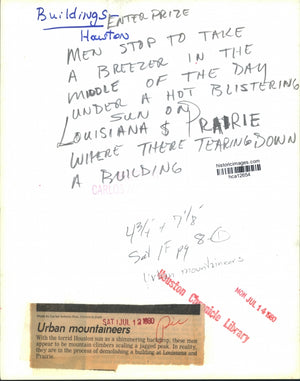 Buildings
ENTERPRIZE
Houston
MEN STOP TO TAKE
A BREEZER IN THE
MIDDLE OF THE DAY
UNDER A HOT BLISTERING
SUN ON
LOUISIANA & PRAIRIE
WHERE THERE TEARING DOWN
A BUILDING
historicimages.com
hca12654
CARLOS
4 3/4" + 7 1/8"
Sat 1F pg 8-1
Urban mountaineers
Houston Chronicle Library
MON JUL 14 1980
SAT JUL 12 1980
Urban mountaineers
With the torrid Houston sun as a shimmering backdrop, these men
appear to be mountain climbers scaling a jagged peak. In reality,
they are in the process of demolishing a building at Louisiana and
Prairie.